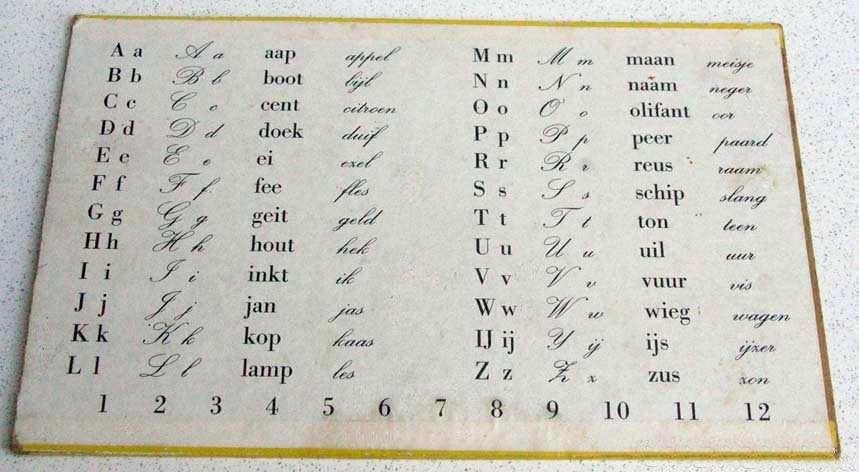 A a A a aap appel
B b B b boot bijl
C c C c cent citroen
D d D d doek duif
E e E e ei ezel
F f F f fee fles
G g G g geit geld
H h H h hout hek
I i I i inkt ik
J j J j jan jas
K k K k kop kaas
L l L l lamp les
M m M m maan meisje
N n N n naam neger
O o O o olifant oor
P p P p peer paard
R r R r reus raam
S s S s schip slang
T t T t ton teen
U u U u uil uur
V v V v vuur vis
W w W w wieg wagen
IJ ij Y ij ijs ijzer
Z z Z z zus zon
1 2 3 4 5 6 7 8 9 10 11 12